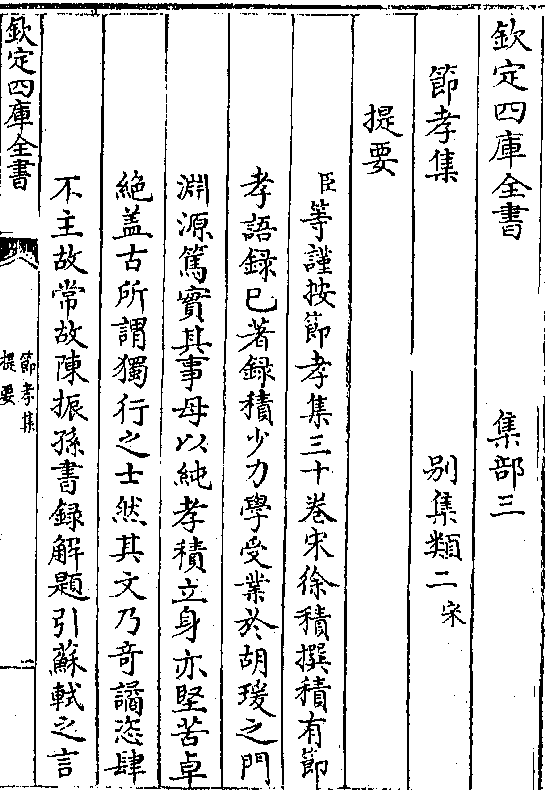 欽定四庫全書 集部三
節孝集 别集類二宋
提要
臣等謹按節孝集三十巻宋徐積撰積有節
孝語録已著録積少力學受業於胡瑗之門
淵源篤實其事母以純孝積立身亦堅苦卓
絶盖古所謂獨行之士然其文乃竒譎恣肆
不主故常故陳振孫書録解題引蘇軾之言
欽定四庫全書
節孝集
提要